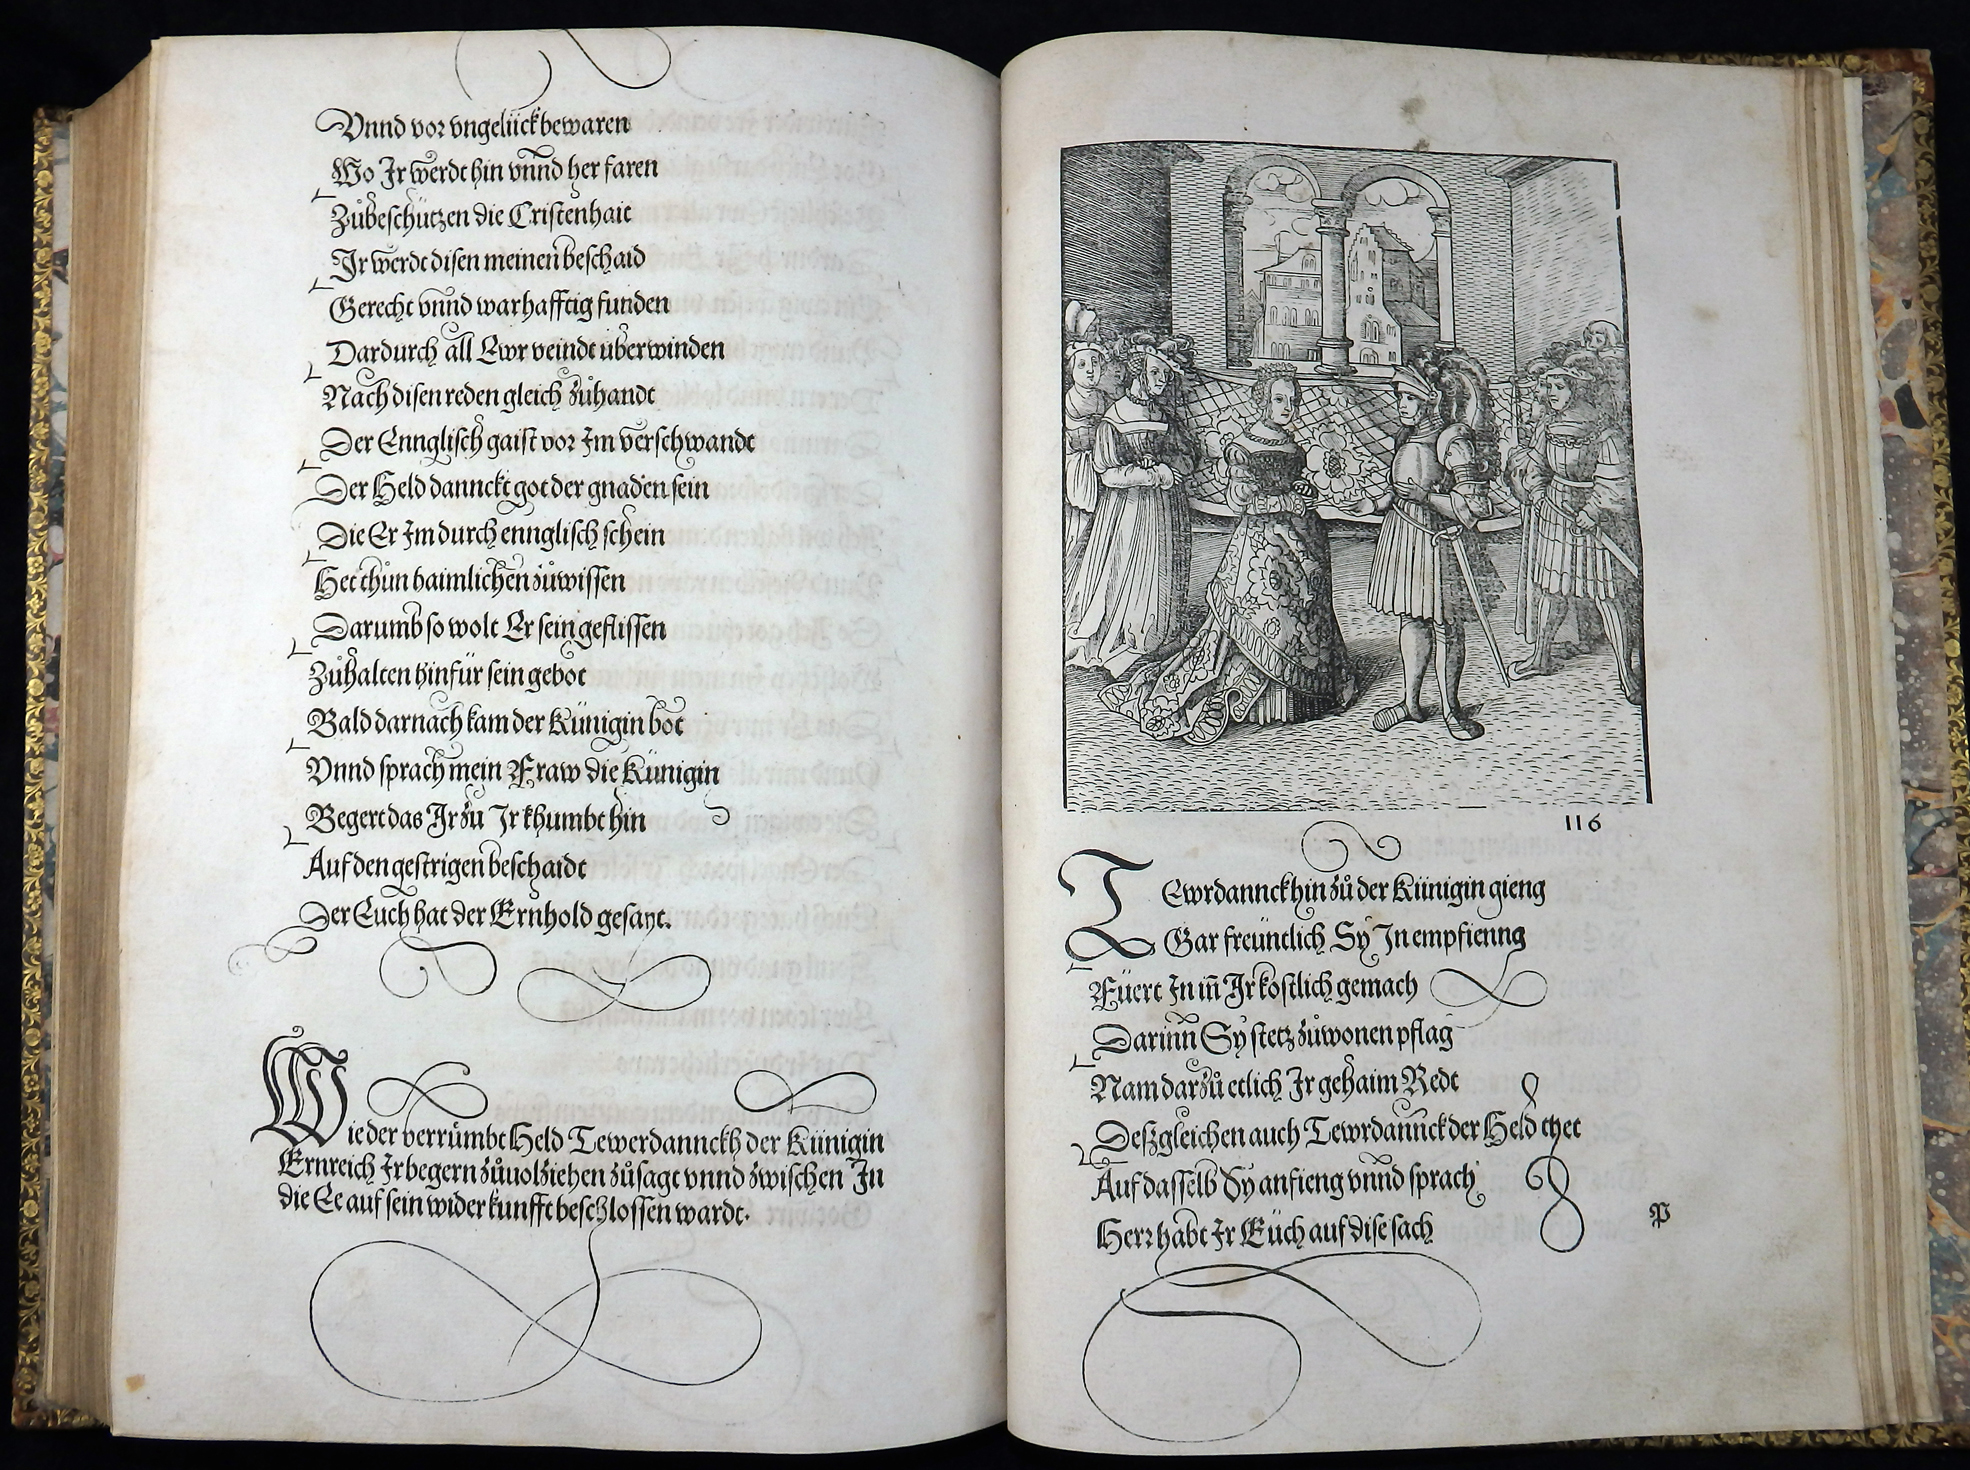 Vnnd vor vngelück bewaren
Wo Jr werdt hin vnnd her faren
Zůbeschützen die Cristenhait
Jr werdt disen meinen beschaid
Gerecht vnnd warhafftig funden
Dardurch all Ewr veindt überwinden
Nach disen reden gleich zůhandt
Der Ennglisch gaist vor Im verschwandt
Der Held dannckt got der gnaden sein
Die Er Im durch ennglisch schein
Het thůn haimlichen zůwissen
Darumb so wolt Er sein geflissen
Zůhalten hinfür sein gebot
Bald darnach kam der Künigin bot
Vnnd sprach mein Fraw die Künigin
Begert das Jr zu Jr khumbt hin
Auf den gestrigen beschaidt
Der Euch hat der Ernhold gesayt.
Wie der verrümbt Held Tewerdannckh der Künigin
Ernreich Ir begern zůuolziehen zůsagt vnnd zwischen In
die Ee auf sein widerkunfft beschlossen wardt.
116
TEwrdannckh hin zů der Künigin gieng
Gar freüntlich Sy In empfienng
Füert In iñ Jr kostlich gemach
Darinn Sy stetz zůwonen pflag
Nam darzů etlich Ir gehaim Redt
Deszgleichen auch Tewrdannck der Held thet
Auf dasselb Sy anfieng vnnd sprach
Herr habt Ir Eüch auf dise sach
P